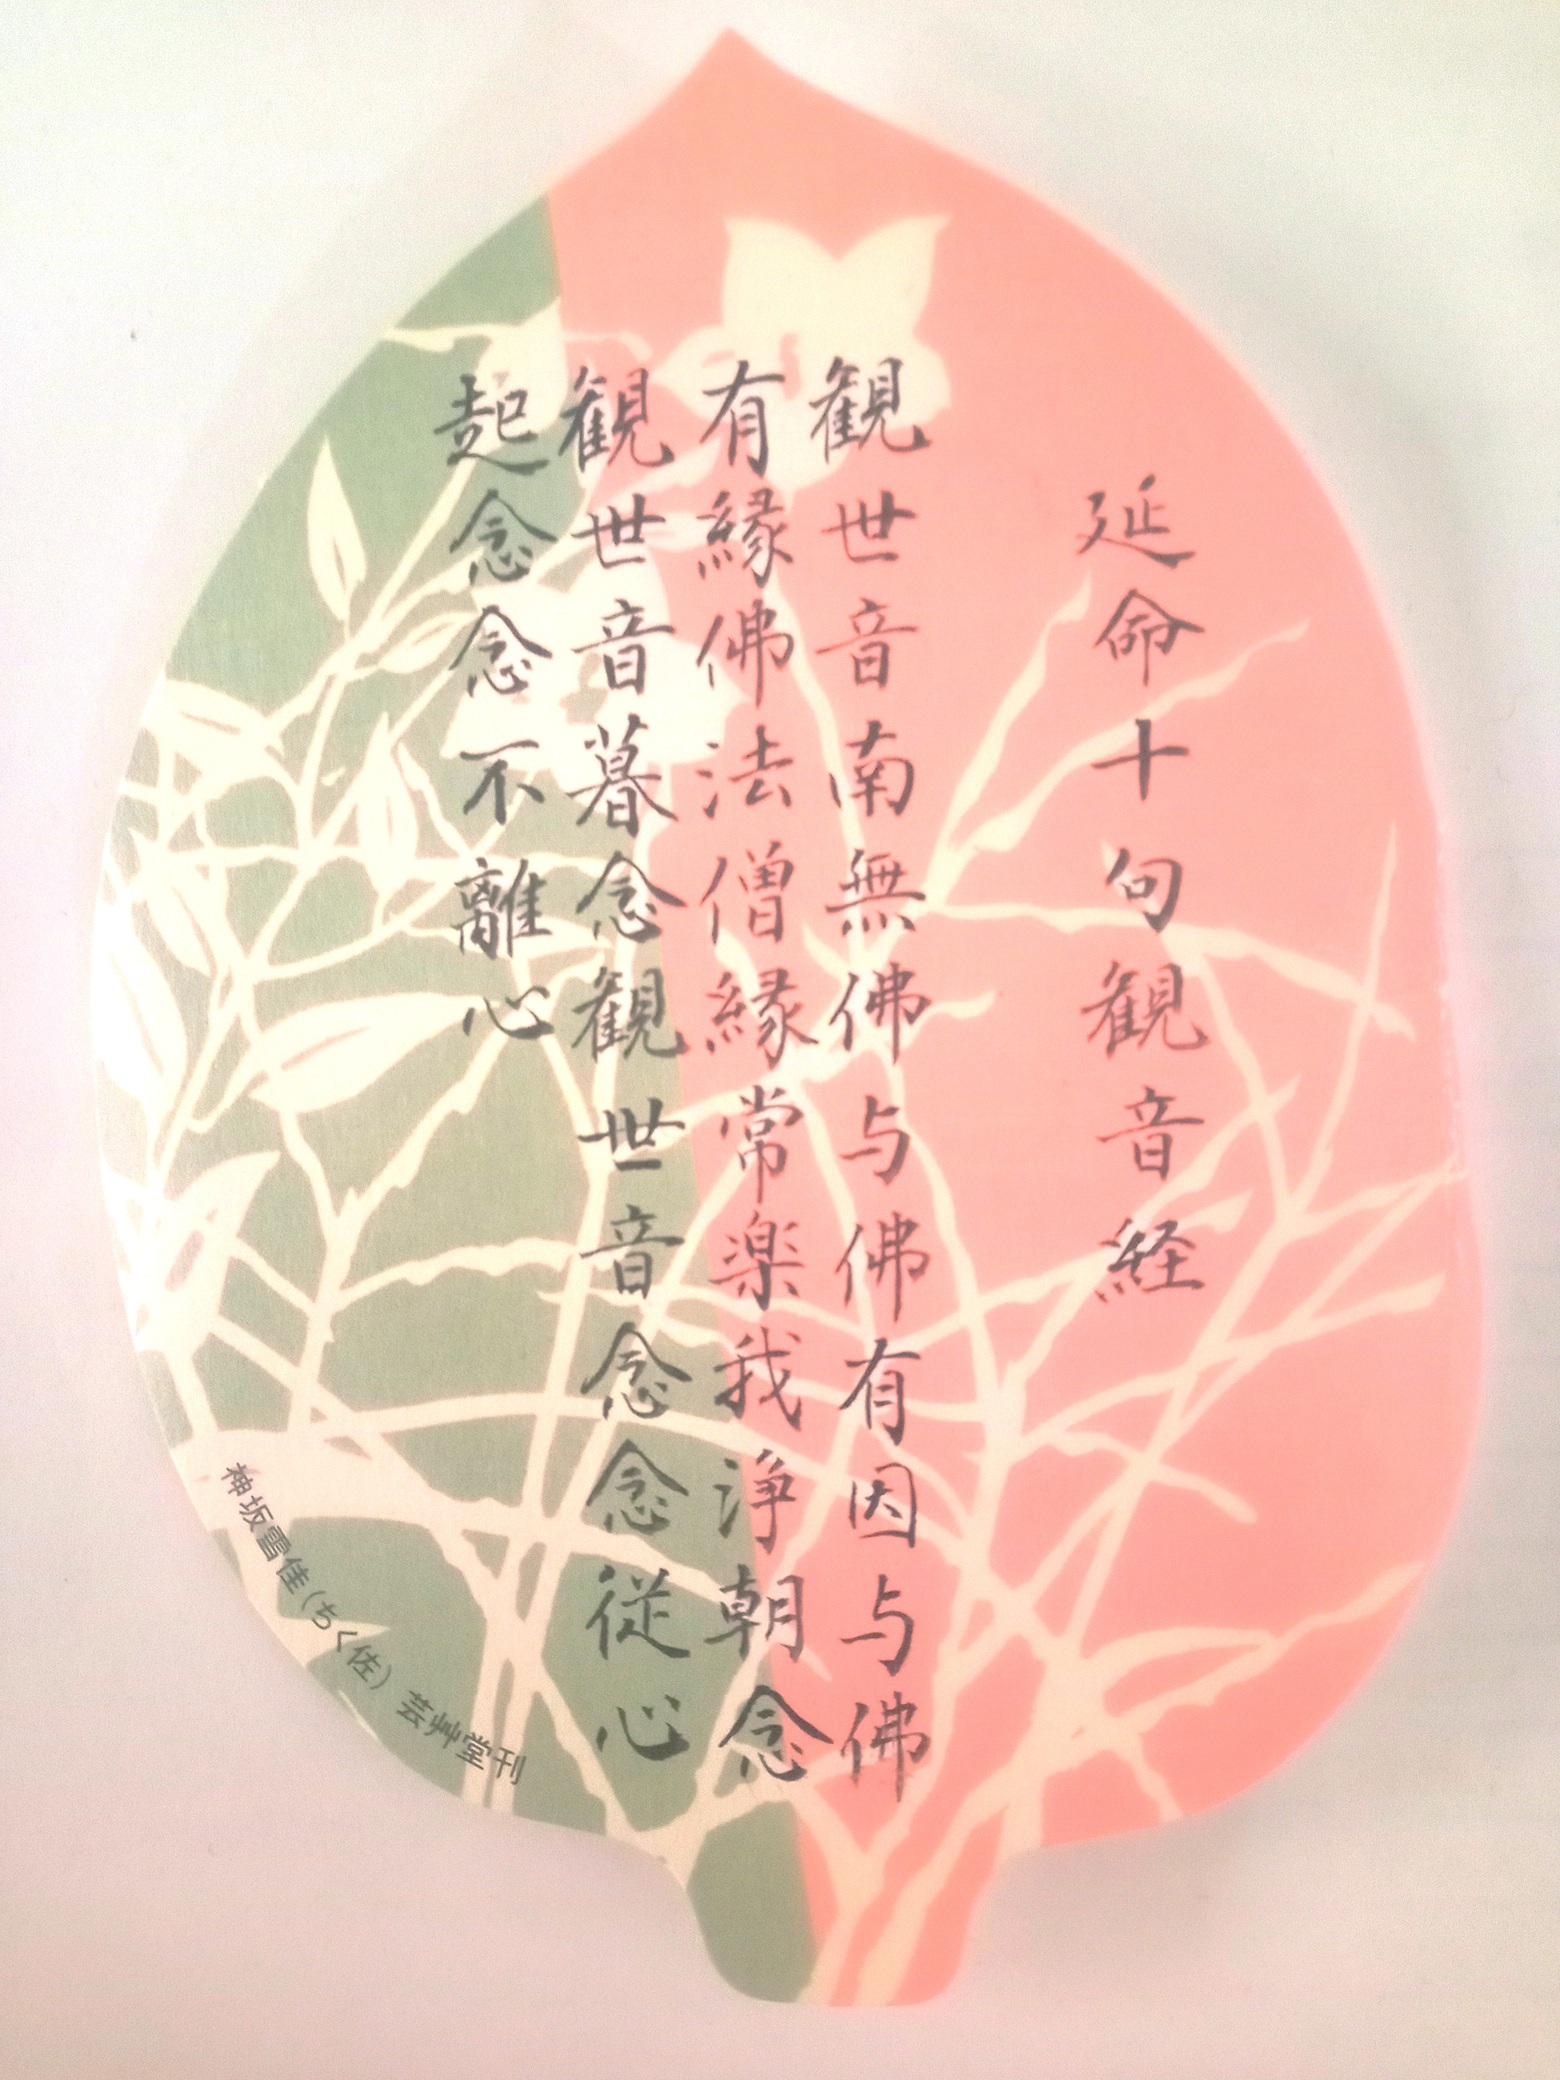 延命十句観音経
観世音南無佛与佛有因与佛
有縁佛法僧縁常楽我浄朝念
観世音暮念観世音念念従心
起念念不離心
神坂雪佳（ちく佐）芸艸堂刊